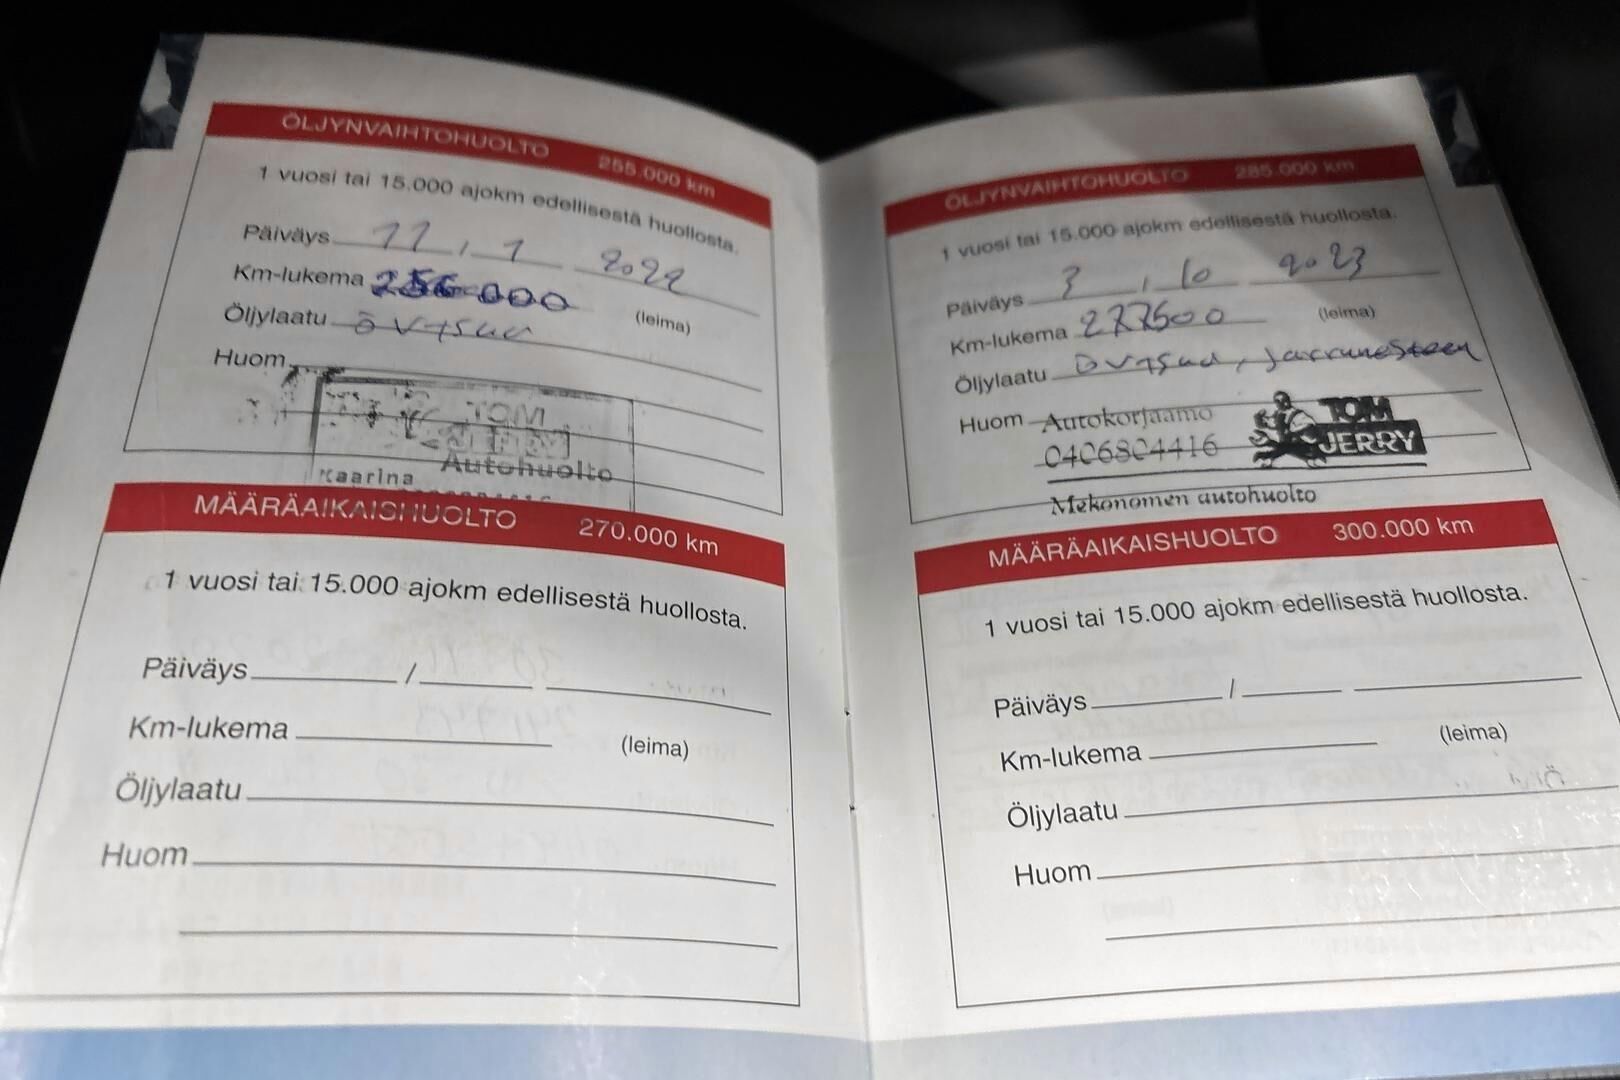 ÖLJYNVAIHTOHUOLTO 255.000 km
1 vuosi tai 15.000 ajokm edellisestä huollosta.
Päiväys 11 / 1 2022
Km-lukema 256000
(leima)
Öljylaatu
Huom
TOM
JERRY
Kaarina Autohuolto
MÄÄRÄAIKAISHUOLTO 270.000 km
1 vuosi tai 15.000 ajokm edellisestä huollosta.
Päiväys /
Km-lukema
(leima)
Öljylaatu
Huom
ÖLJYNVAIHTOHUOLTO 285.000 km
1 vuosi tai 15.000 ajokm edellisestä huollosta.
Päiväys 3 / 10 2023
Km-lukema 277500 (leima)
Öljylaatu
Huom Autokorjaamo TOM
0406804416 JERRY
Mekonomen autohuolto
MÄÄRÄAIKAISHUOLTO 300.000 km
1 vuosi tai 15.000 ajokm edellisestä huollosta.
Päiväys /
Km-lukema (leima)
Öljylaatu
Huom